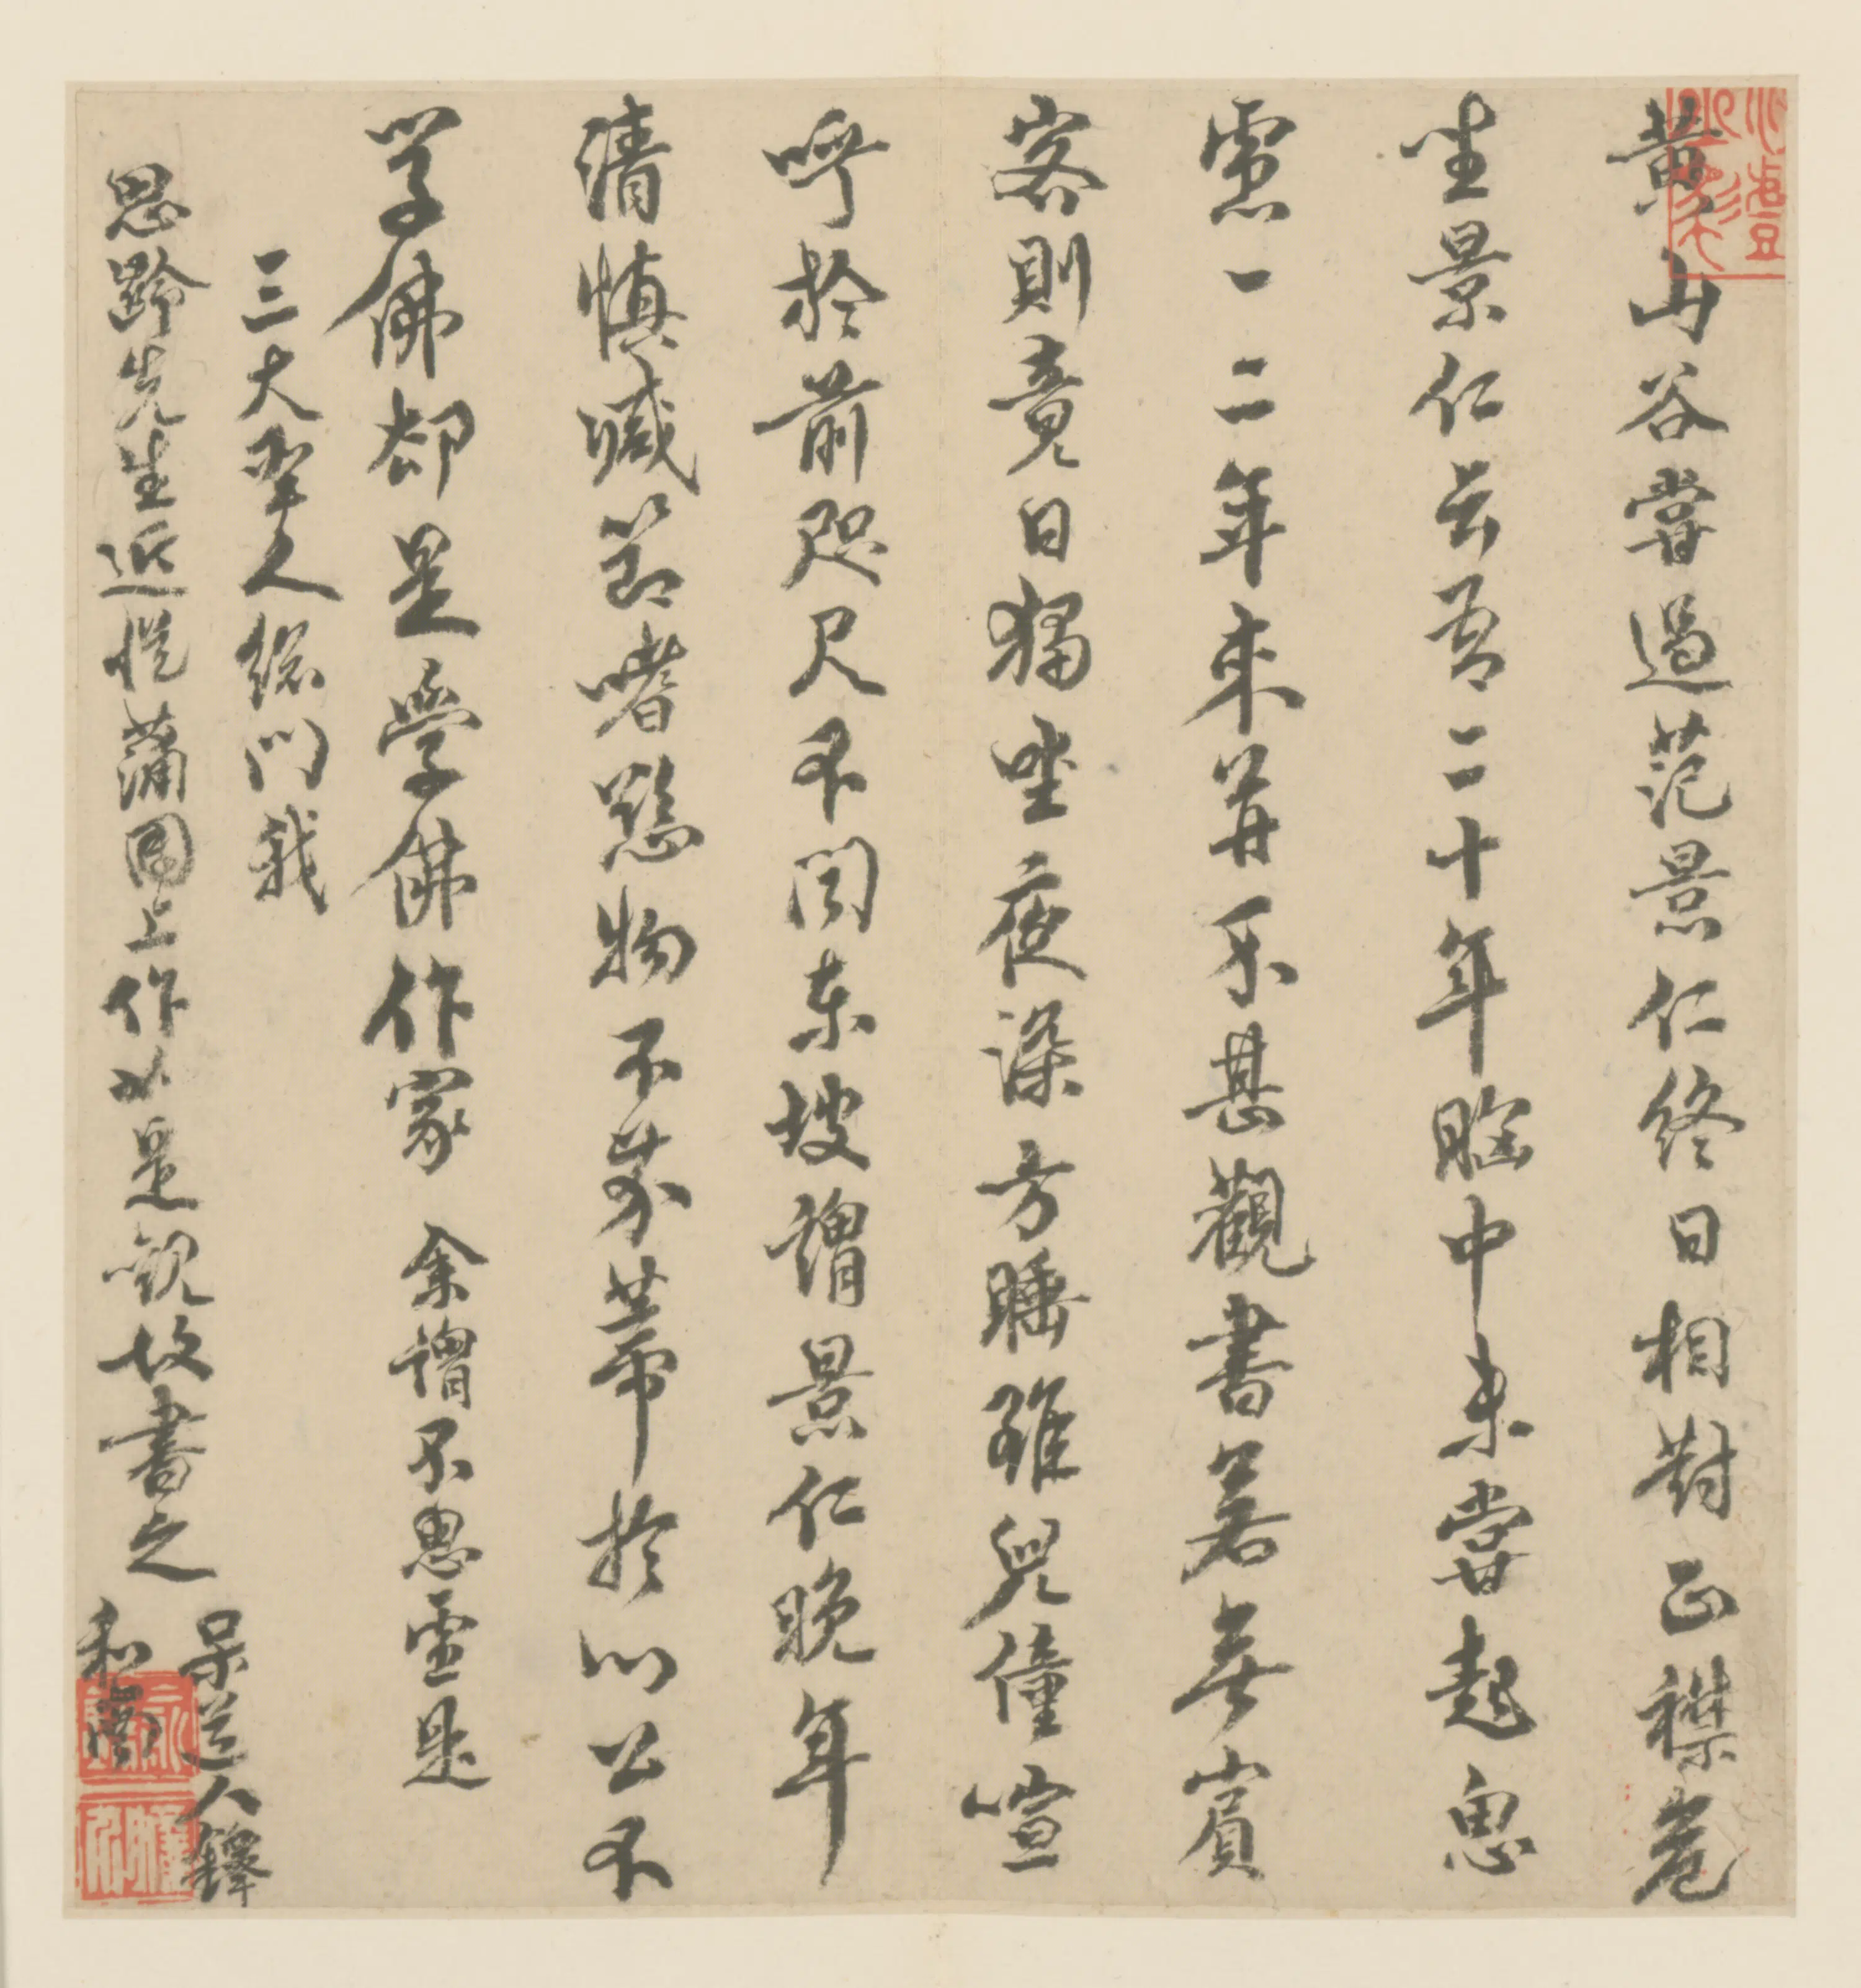 黃山谷嘗過范景仁終日相對正襟危
坐景仁云吾二十年胸中未嘗起思
慮一二年來算不甚觀書若無賓
客則竟日獨坐夜深方睡雖兒僮喧
呼於前咫尺不聞東坡謂景仁晚年
清慎減節嗜慾物不芥蒂於心公不
學佛卻是學佛作家 余謂不思慮是
三大聖人總門哉
思齡先生近從蒲團上作如是觀故書之
呆道人鐸
和南